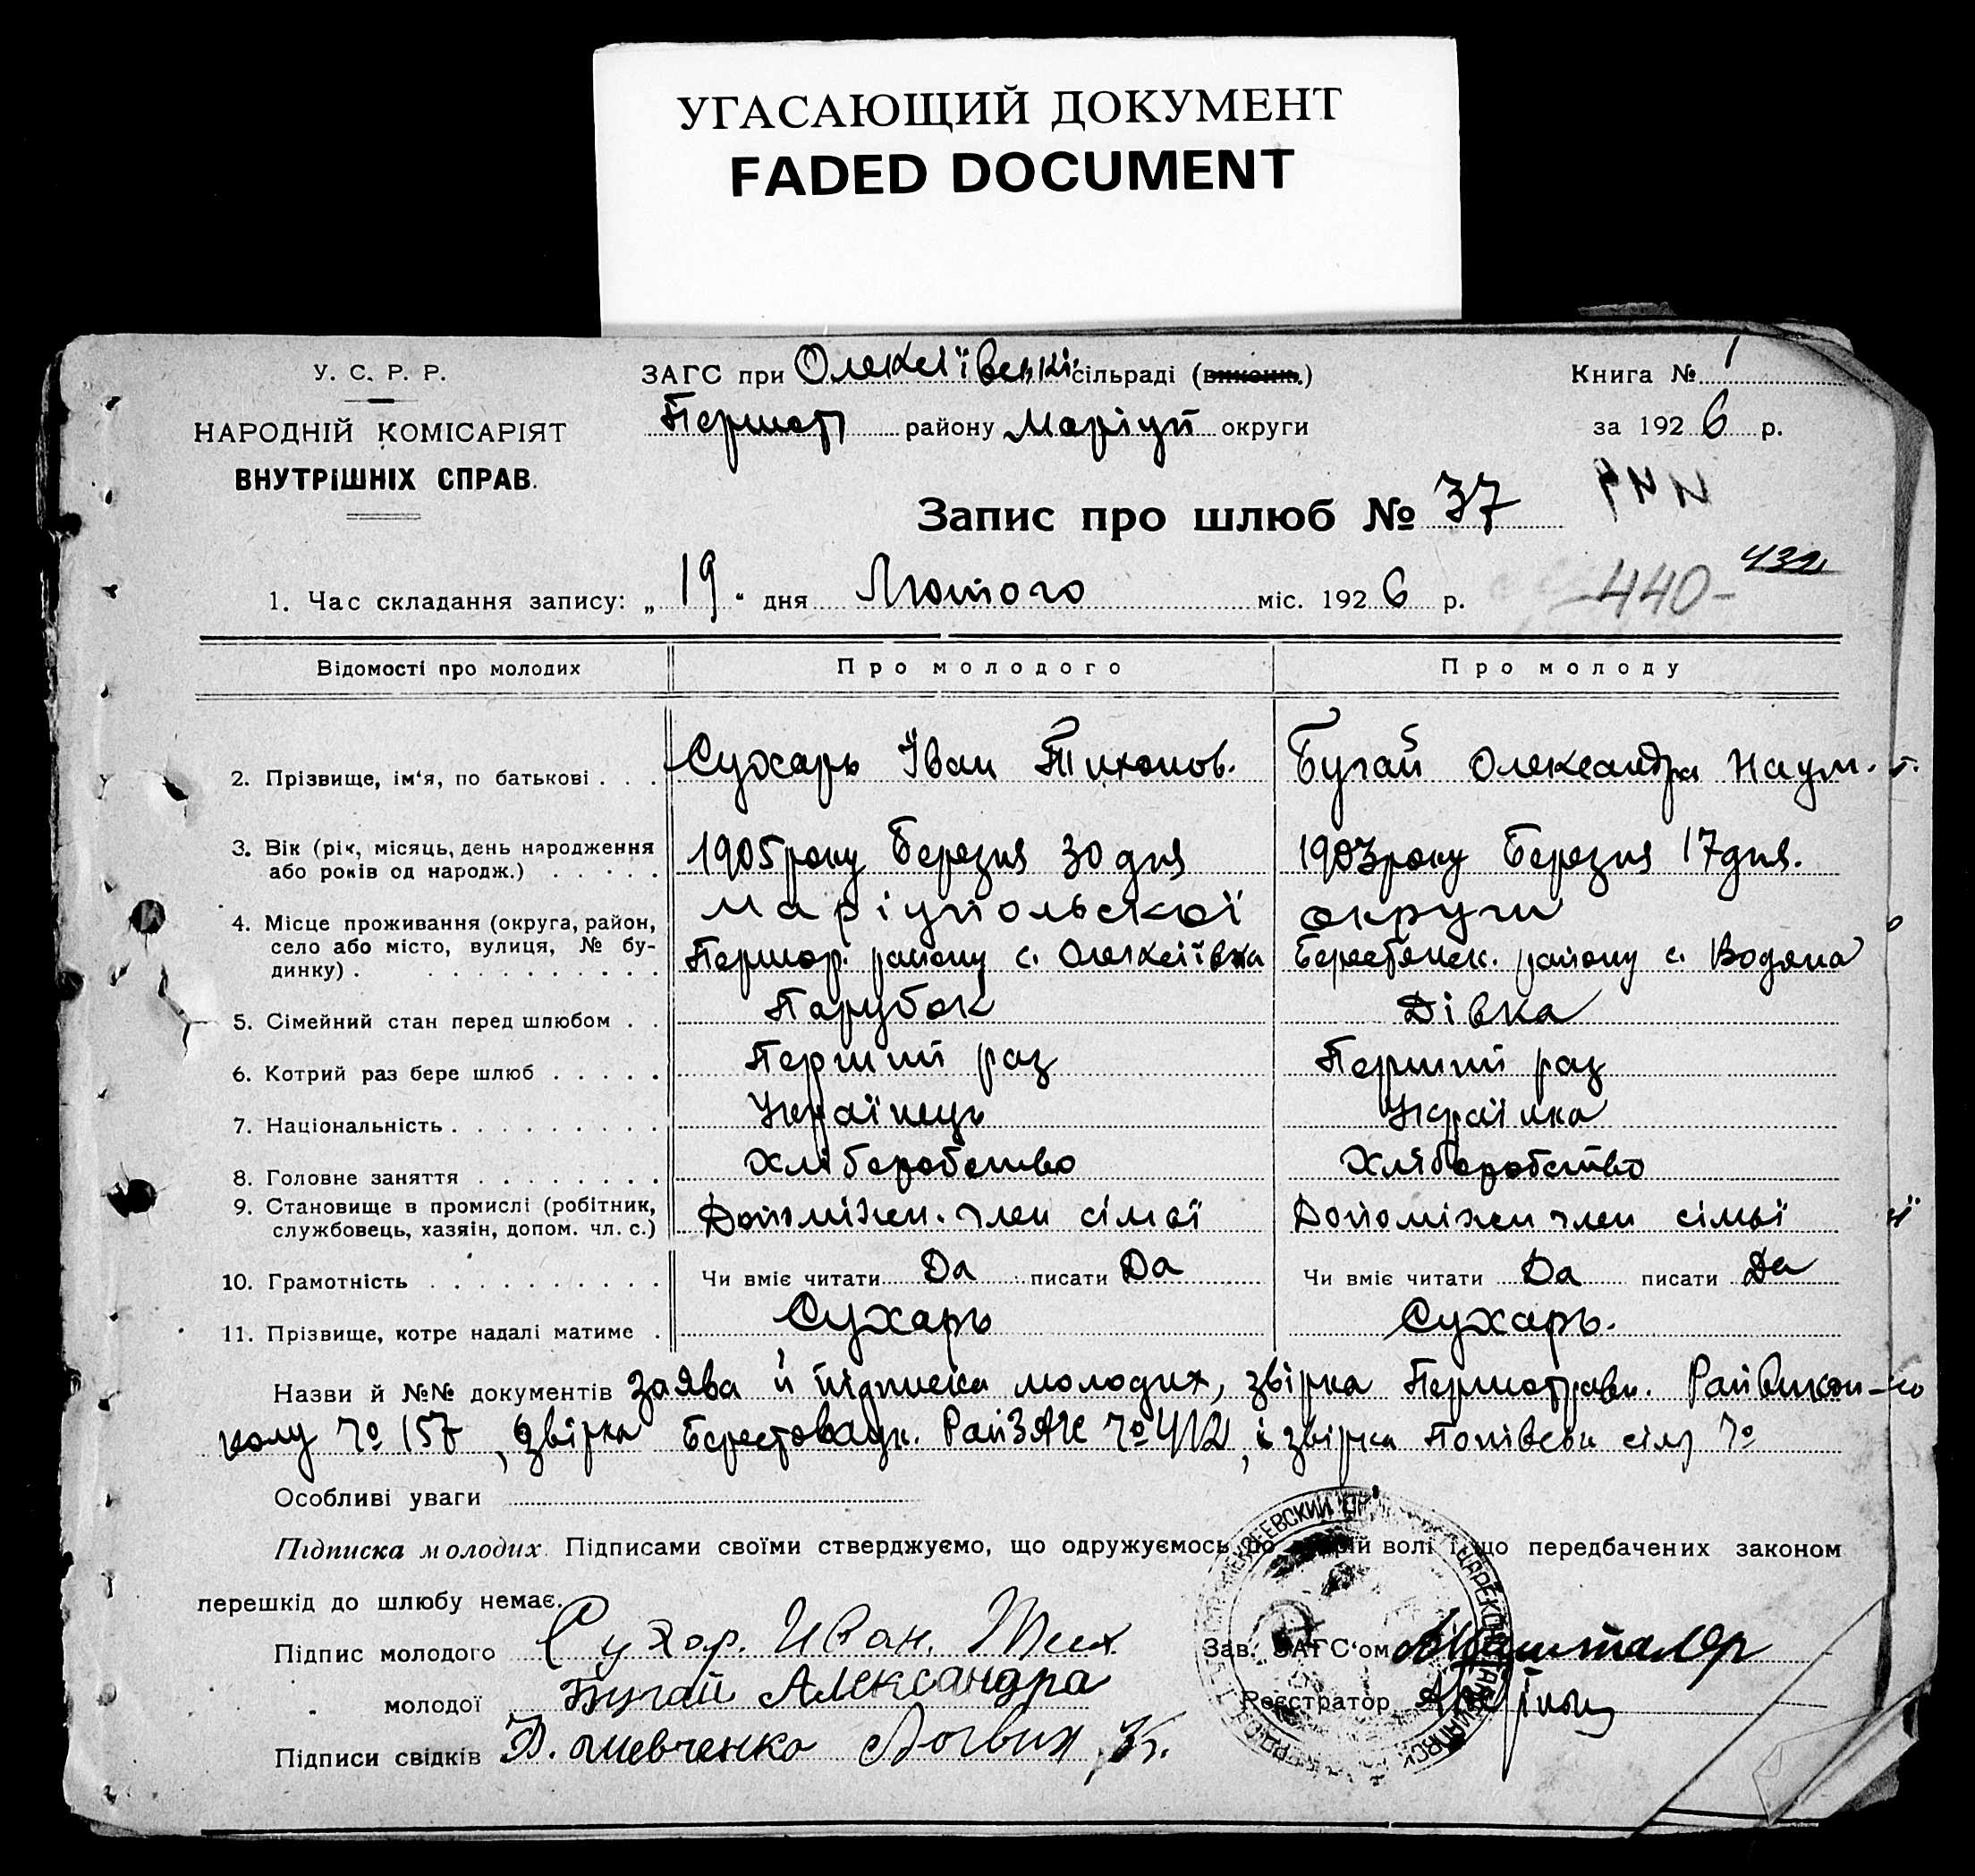 УГАСАЮЩИЙ ДОКУМЕНТ
FADED DOCUMENT
У. С. Р. Р.
НАРОДНІЙ КОМІСАРІЯТ
ВНУТРІШНІХ СПРАВ.
ЗАГС при Олексіївські сільраді (викон.)
район у Маріуп округи
Книга № 1
за 1926 р.
Запис про шлюб № 37
432
440-
1. Час складання запису: „19" дня Лютого міс. 1926 р.
Відомості про молодих Про молодого Про молоду
2. Прізвище, ім'я, по батькові . . . Сухарь Іван Тихонов. Бугай Олександра Наум.
3. Вік (рік, місяць, день народження
або років од народж.) . . . . . 1905 року Березня 30 дня 1903 року Березня 17 дня.
4. Місце проживання (округа, район, Маріупольської округи
село або місто, вулиця, № бу- Першор. району с. Олексіївка району с. Водяна
динку) . . . . . . . . . . .
5. Сімейний стан перед шлюбом . . Парубок Дівка
6. Котрий раз бере шлюб . . . . . Перший раз Перший раз
7. Національність . . . . . . . . . Українець Українка
8. Головне заняття . . . . . . . . Хліборобство Хліборобство
9. Становище в промислі (робітник,
службовець, хазяін, допом. чл. с.) Допоміжн. член сімьї Допоміжн член сімьї
10. Грамотність . . . . . . . . . . Чи вміє читати Да писати Да Чи вміє читати Да писати Да
11. Прізвище, котре надалі матиме . Сухарь Сухарь.
Назви й №№ документів заява й підписка молодих, звірка Райвикон-
кому № 157, звірка РайЗАГС № 412, і звірка №
Особливі уваги
Підписка молодих. Підписами своїми стверджуємо, що одружуємось по волі і що передбачених законом
перешкід до шлюбу немає.
Підпис молодого Сухор. Иван. Тих
„ молодої Бугай Александра
Підписи свідків Д. Шевченко Логвин
Зав. ЗАГС'ом
Реєстратор